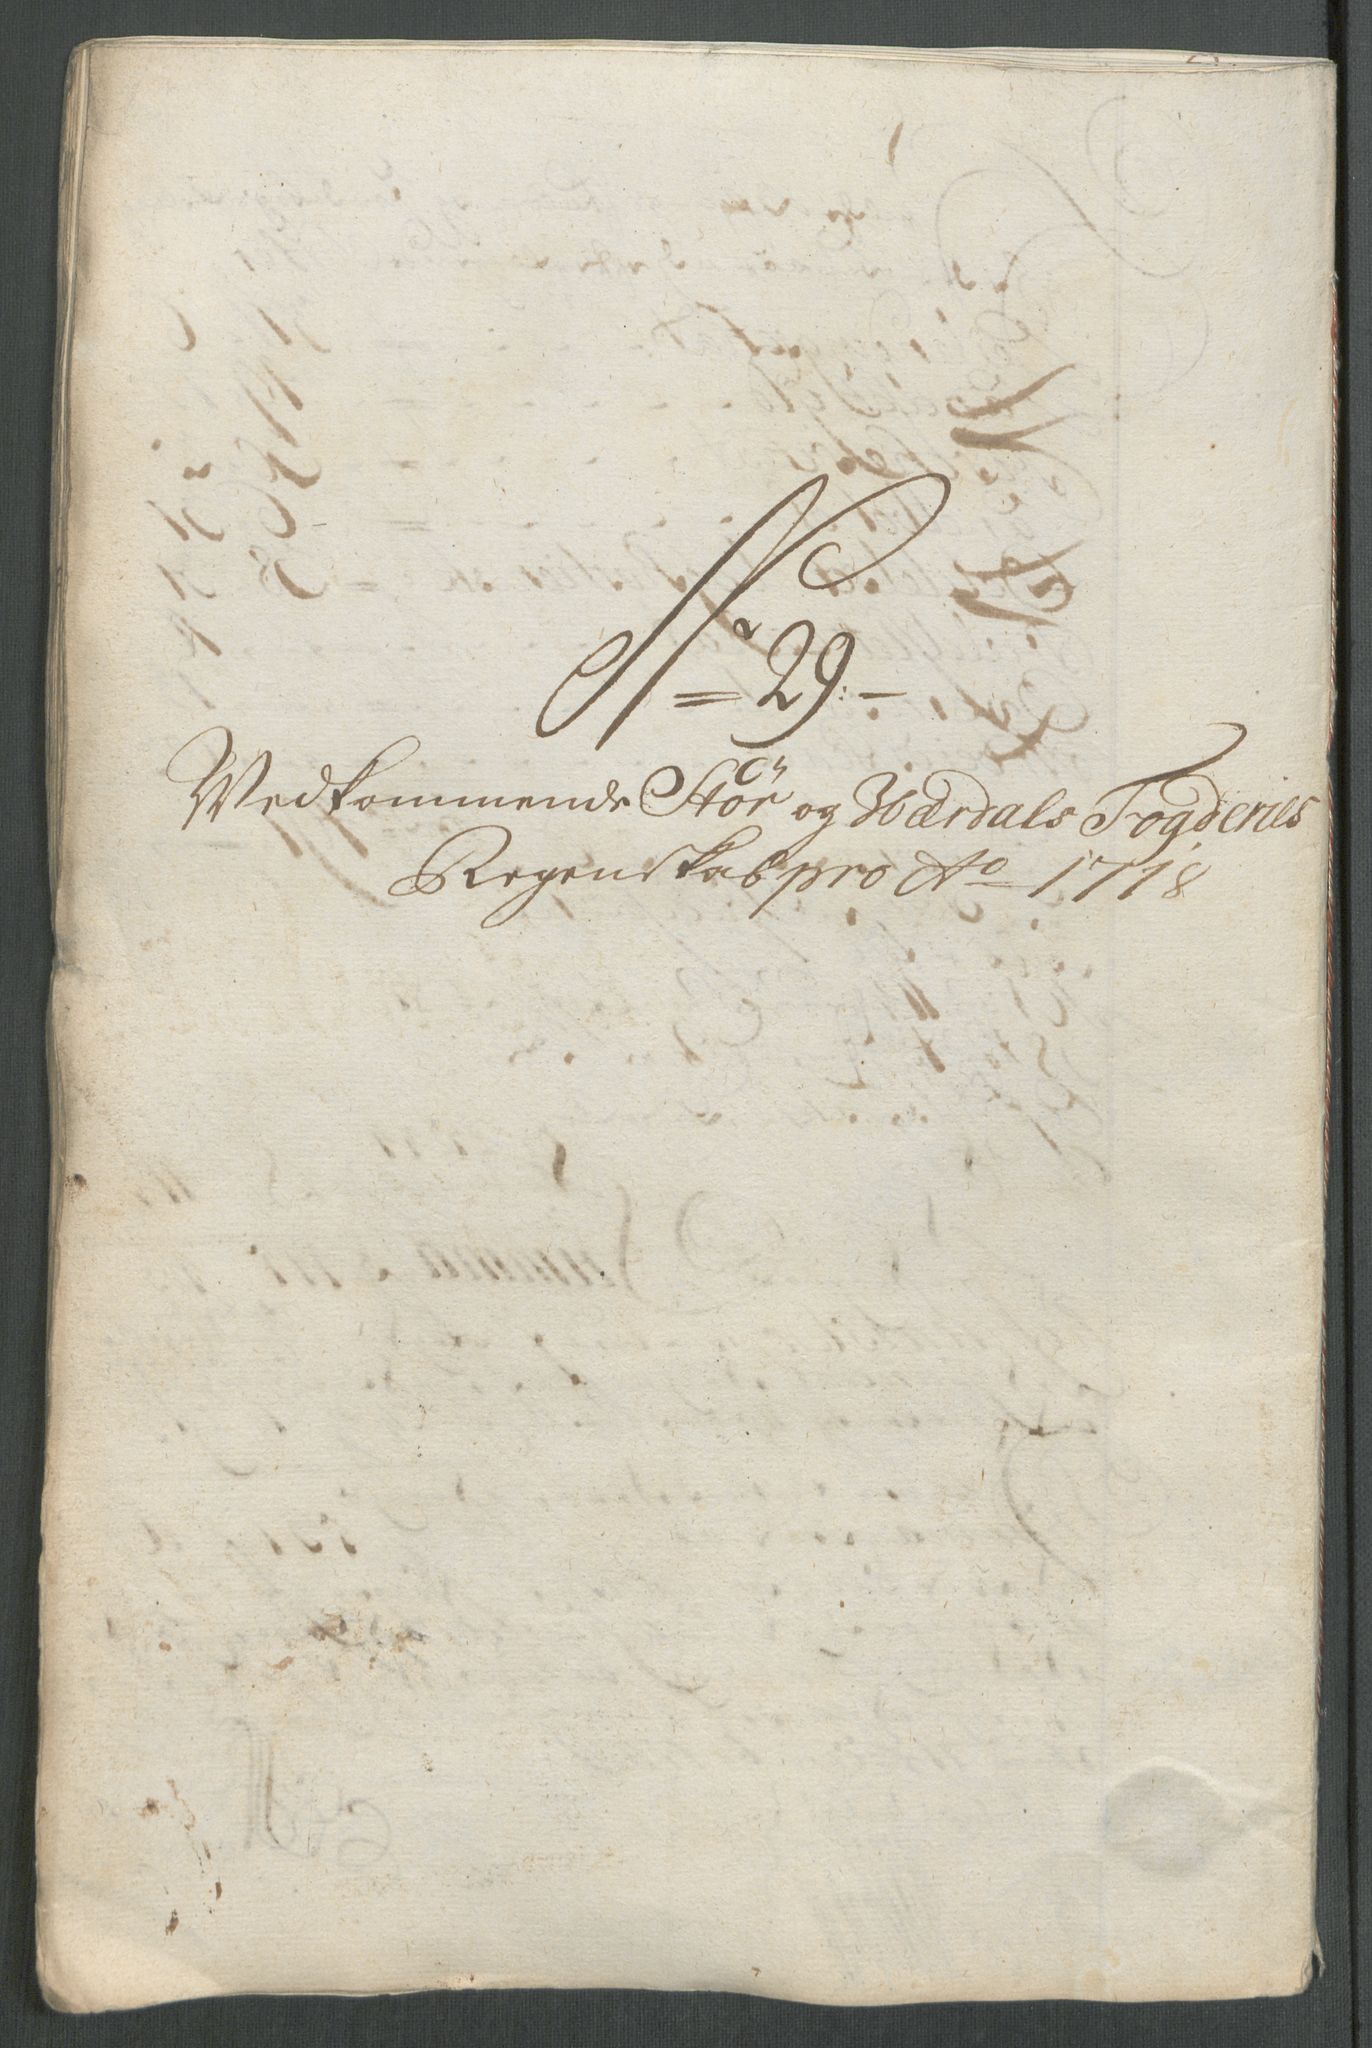 No 29:-
Wedkommende Stör og Werdals Fogderies
Regenskab pro Ao 1718